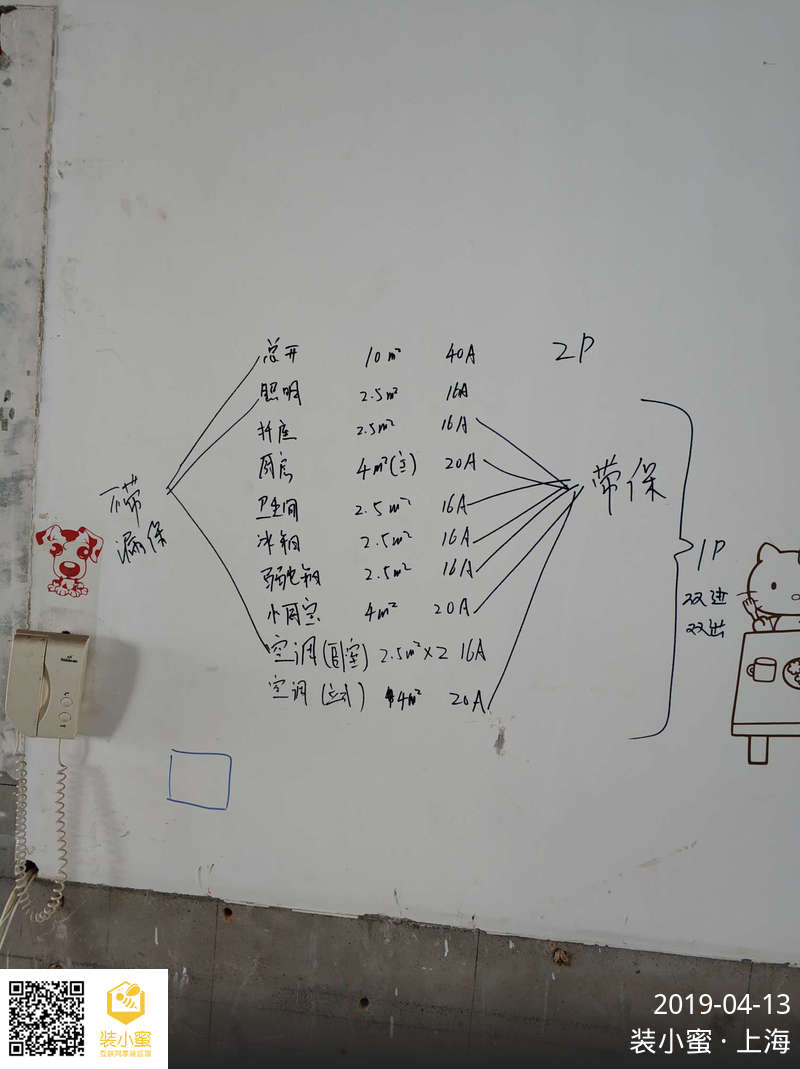 总开 10m² 40A 2P
照明 2.5m² 16A
插座 2.5m² 16A
厨房 4m² 20A
卫生间 2.5m² 16A
冰钢 2.5m² 16A
弱电钢 2.5m² 16A
小厨宝 4m² 20A
空调(卧室) 2.5m²×2 16A
空调(立式) 4m² 20A
不带
漏保
带保
1P
双进
双出
装小蜜
互联网家装监理
2019-04-13
装小蜜·上海